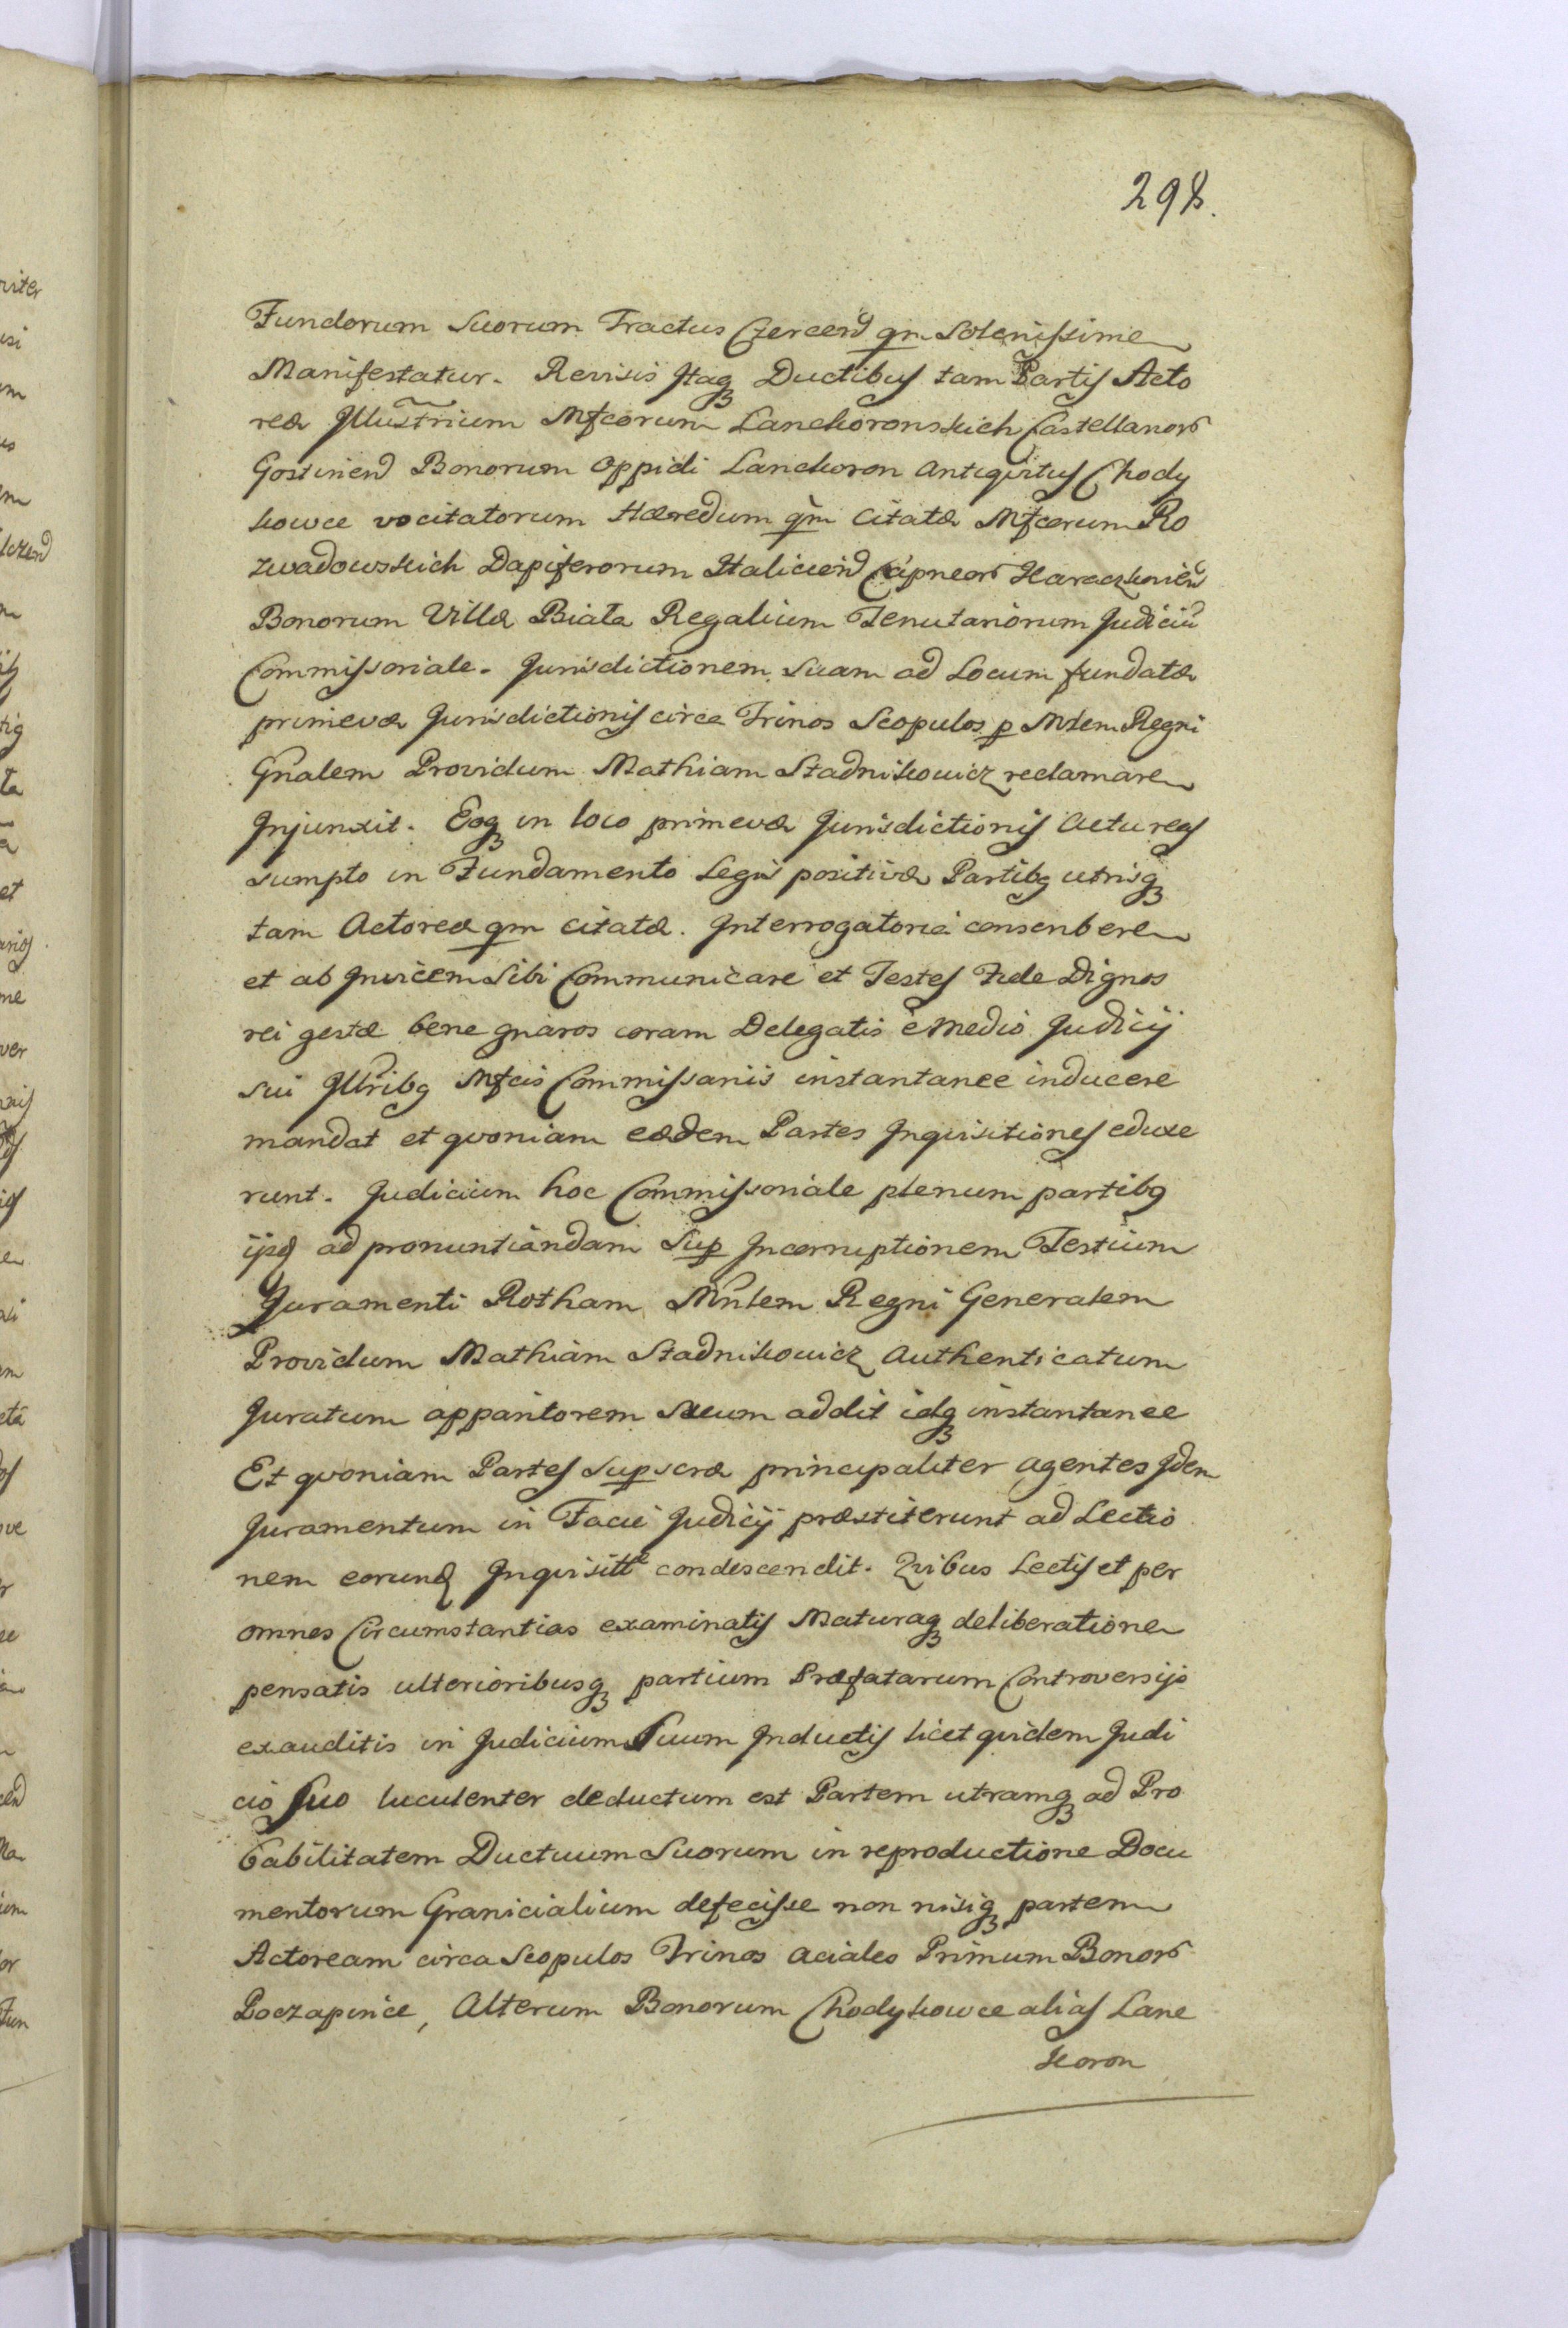 298.
Fundorum Suorum Tractus Exercend qm Solenissime
Manifestatur. Revisis Itaq Ductibus tam Partis Acto
reæ Illustrium Mfcorum Lanckoronskich Castellanor
Gostinen Bonorum Oppidi Lanckoron Antiqvitus Chody
kowce vocitatorum Hæredum qm Citatæ Mfcorum Ro
zwadowskich Dapiferorum Halicien Capneor Haraczkovien
Bonorum Villæ Biała Regalium Tenutariorum Judiciu
Commissoriale. Jurisdictionem Suam ad Locum fundatæ
primevæ Jurisdictionis circa Trinos Scopulos p Mlem Regni
Gnalem Providum Mathiam Stadnikowicz reclamare
Injunxit. Eoq in loco primevæ Jurisdictionis Actu reas
sumpto in Fundamento Legis positivæ Partibq utrisq
tam Actoreæ qm citatæ. Interrogatoria conscribere
et ab Invicem Sibi Communicare et Testes Fide Dignos
rei gestæ bene gnaros coram Delegatis è medio Judicij
sui Illribq Mfcis Commissariis instantanee inducere
mandat et qvoniam eædem Partes Inqvisitiones eduxe
runt. Judicium hoc Commissoriale plenum partibq
ijsd ad pronuntiandam Sup Incorruptionem Testium
Juramenti Rotham Mnlem Regni Generalem
Providum Mathiam Stadnikowicz Authenticatum
Juratum apparitorem Suum addit idq instantanee
Et qvoniam Partes sup scræ principaliter agentes Idem
Juramentum in Facie Judicij præstiterunt ad Lectio
nem eorund Inqvisitt condescendit. Qvibus Lectis et per
omnes Circumstantias examinatis Maturaq deliberatione
pensatis ulterioribusq partium Præfatarum Controversijs
exauditis in Judicium Suum Inductis licet qvidem Judi
cio Suo luculenter deductum est Partem utramq ad Pro
babilitatem Ductuum Suorum in reproductione Docu
mentorum Granicialium defecisse non nisiq partem
Actoream circa Scopulos Trinos aciales Primum Bonor
Poczapince, Alterum Bonorum Chodykowce alias Lanc
Koron